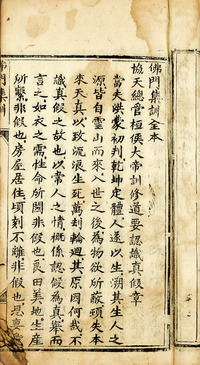 佛門集訓全本
協天總官桓侯大帝訓修道要認識真假章
當夫洪蒙初判乾坤定體人遂以生溯其生人之
源皆自靈山而來入世之後為物欲所蔽頓失本
來天真以致流浪生死萬刦輪迴其原因何哉不
識真假之故也以常人之情概係認假為真舉而
言之如衣之需性命所關非假也良田美地生產
所繫非假也房屋居住頃刻不離非假也恩
佛門集訓